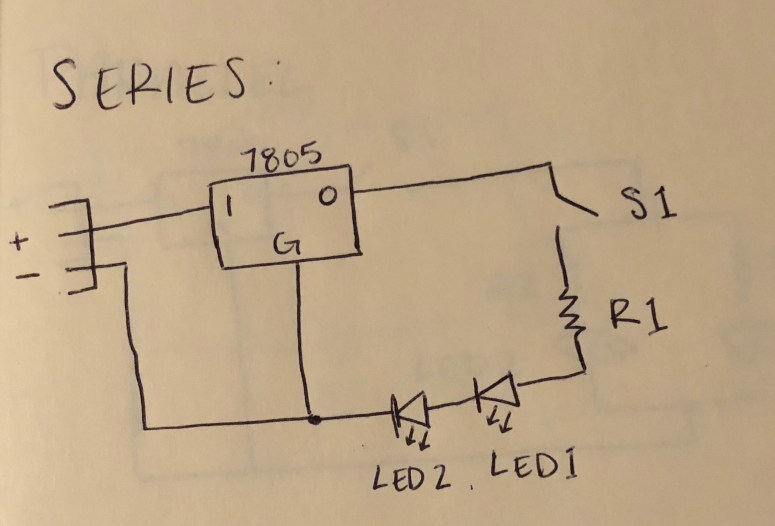 SERIES:
7805
I O
G
+
-
S1
R1
LED2. LED1